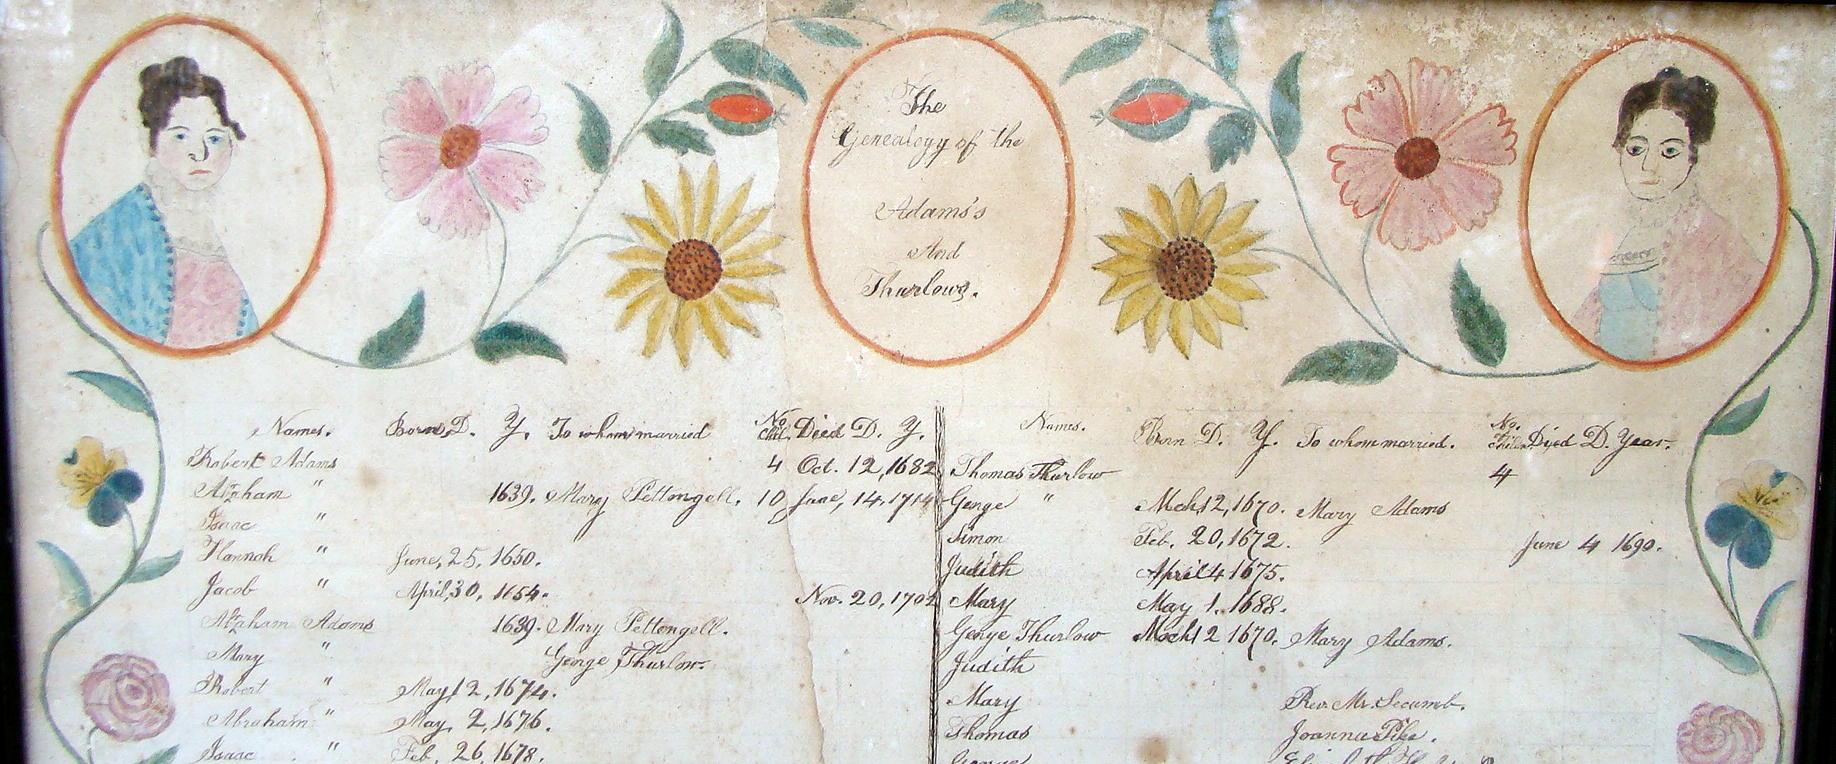 The
Genealogy of the
Adams's
And
Thurlows.
Names. Born, D. Y. To whom married No Chil. Died D. Y.
Robert Adams 4 Oct. 12, 1682
Abraham " 1639. Mary Pettongell. 10 June, 14, 1714
Isaac "
Hannah " June, 25, 1650.
Jacob " April, 30, 1654. Nov. 20, 1704
Abraham Adams 1639. Mary Pettongell.
Mary " George Thurlow.
Robert " May 12, 1674.
Abraham " May, 2, 1676.
Isaac " Feb, 26, 1678.
Names. Born D. Y. To whom married. No. Died D. Year.
Thomas Thurlow 4
George " Mch 12, 1670. Mary Adams
Simon Feb. 20, 1672. June 4 1690.
Judith April 4 1675.
Mary May 1, 1688.
George Thurlow Mch 12 1670. Mary Adams.
Judith
Mary Rev. Mr. Secumb.
Thomas Joanna Pike.
George